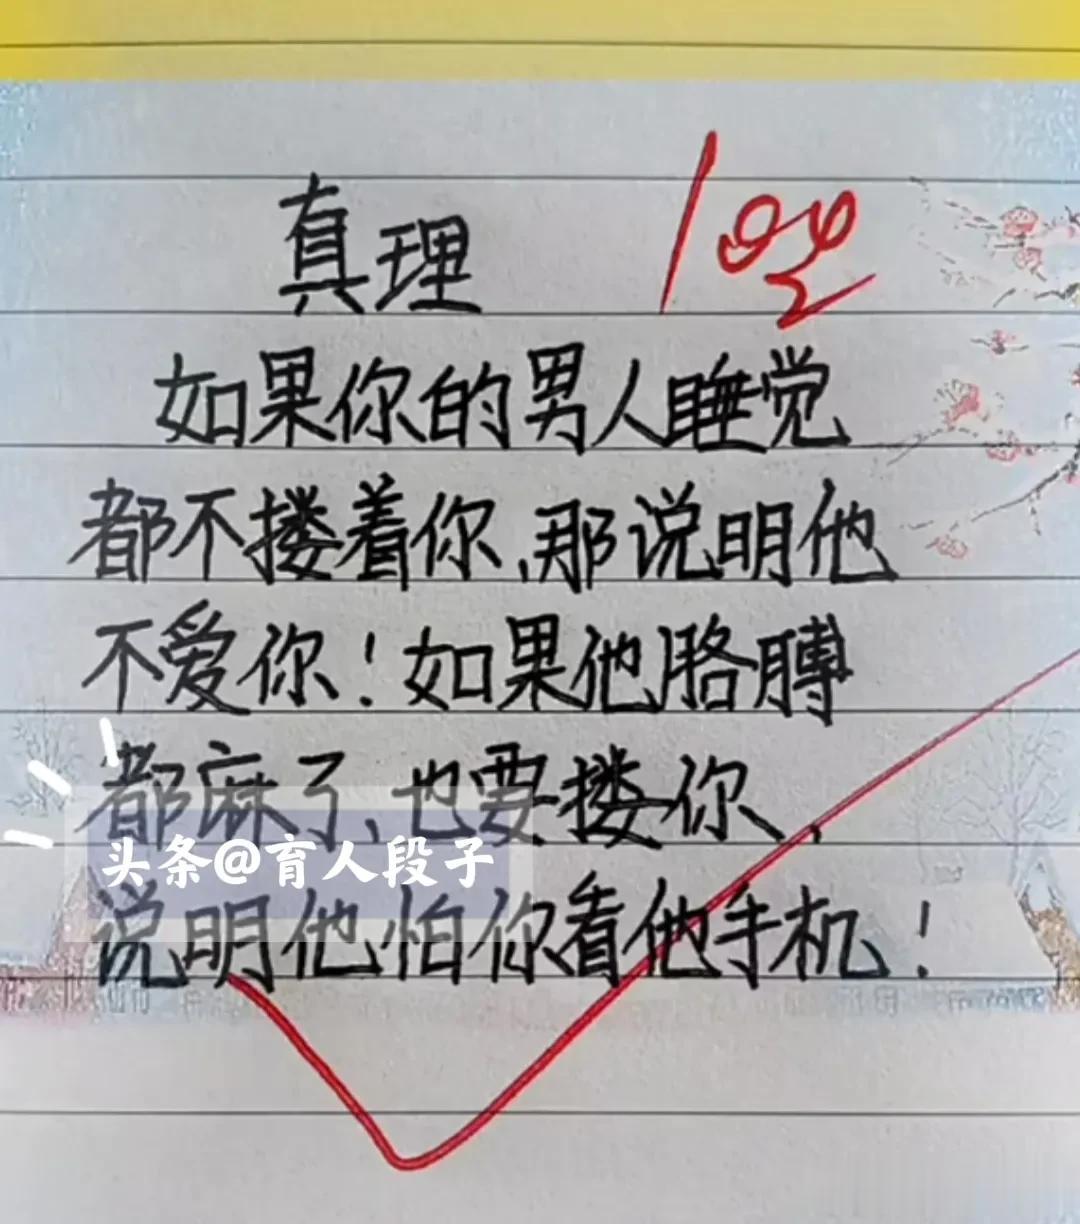 真理 100
如果你的男人睡觉
都不搂着你、那说明他
不爱你！如果他胳膊
都麻了、也要搂你、
头条@育人段子
说明他怕你看他手机！